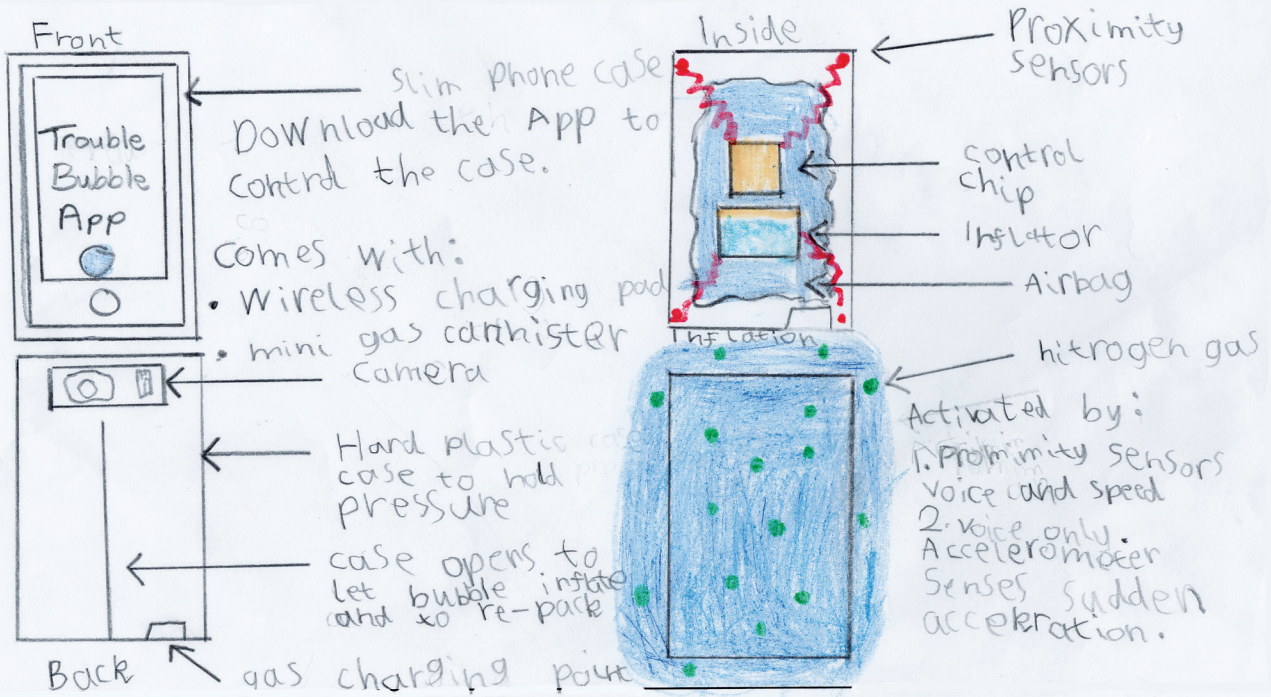 Front
Trouble
Bubble
App
slim phone case
Download the App to
control the case.
comes with:
• wireless charging pad
• mini gas cannister
camera
Hard plastic
case to hold
pressure
case opens to
let bubble inflate
and to re-pack
Back
gas charging point
Inside
Proximity
sensors
control
chip
Inflator
Airbag
Inflation
nitrogen gas
Activated by:
1. Proximity sensors
voice and speed
2. voice only.
Accelerometer
senses sudden
acceleration.